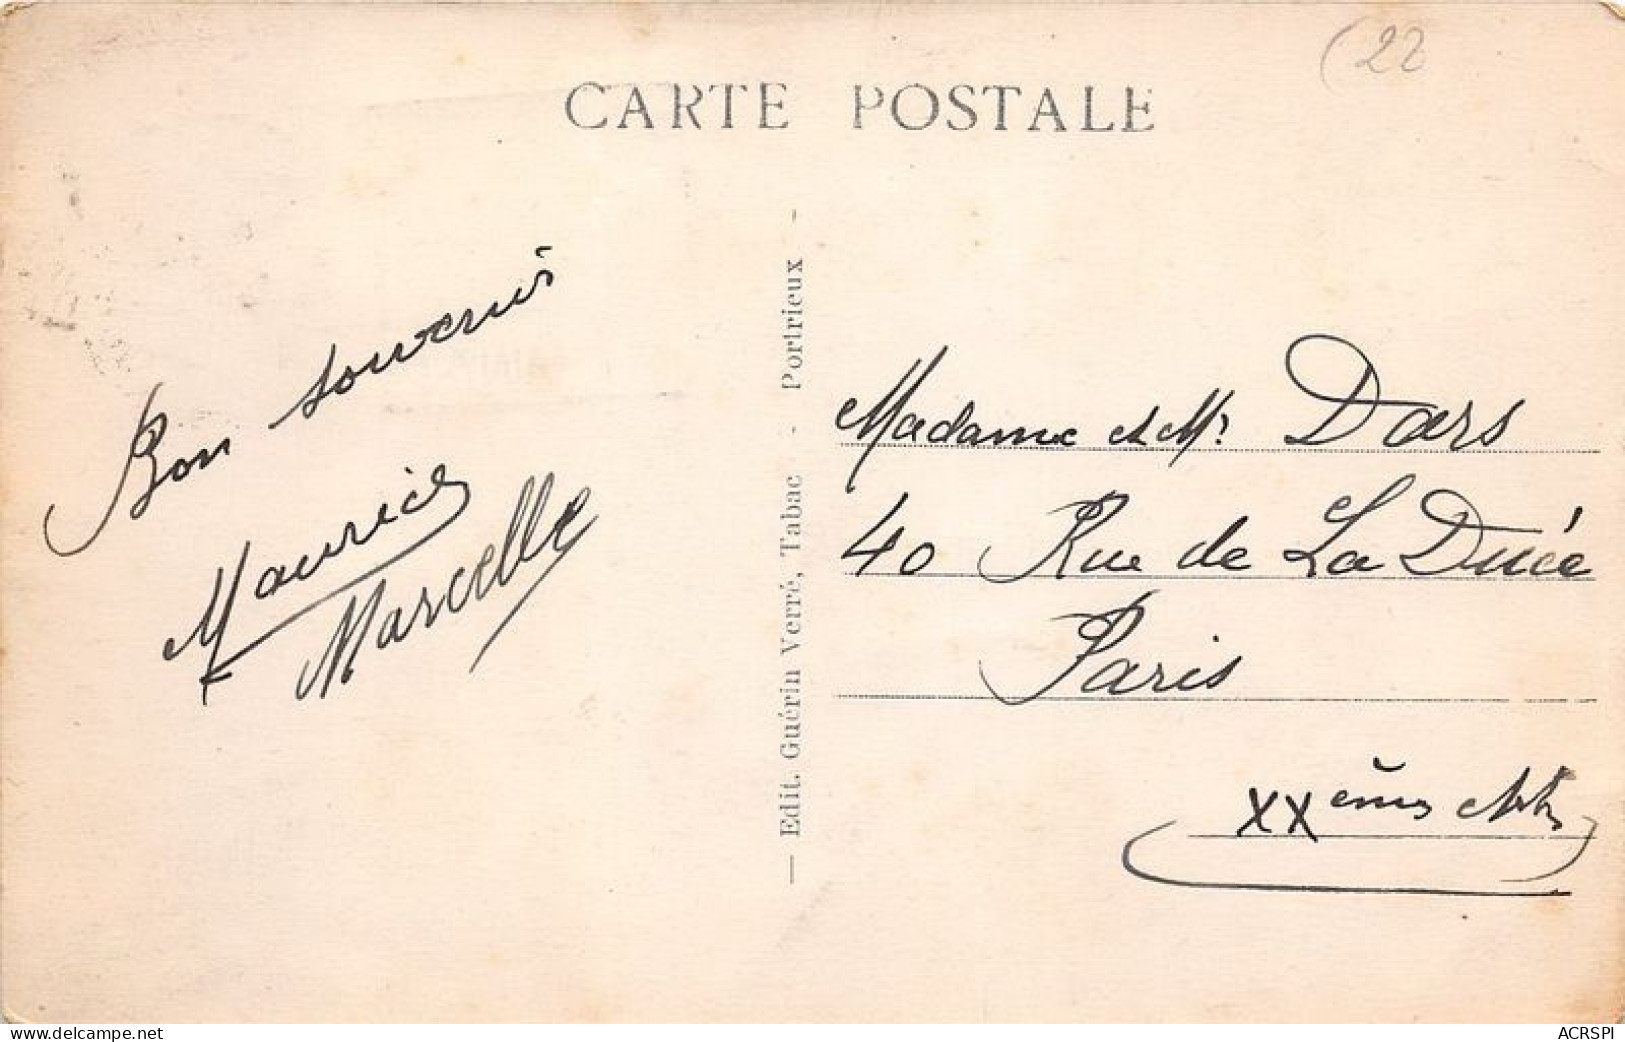 (22
CARTE POSTALE
Bon souvenir
Maurice
Marcelle
— Edit. Guérin Verré, Tabac - Portrieux -
Madame et Mr Dars
40 Rue de La Duée
Paris
XXème
www.delcampe.net
ACRSPI